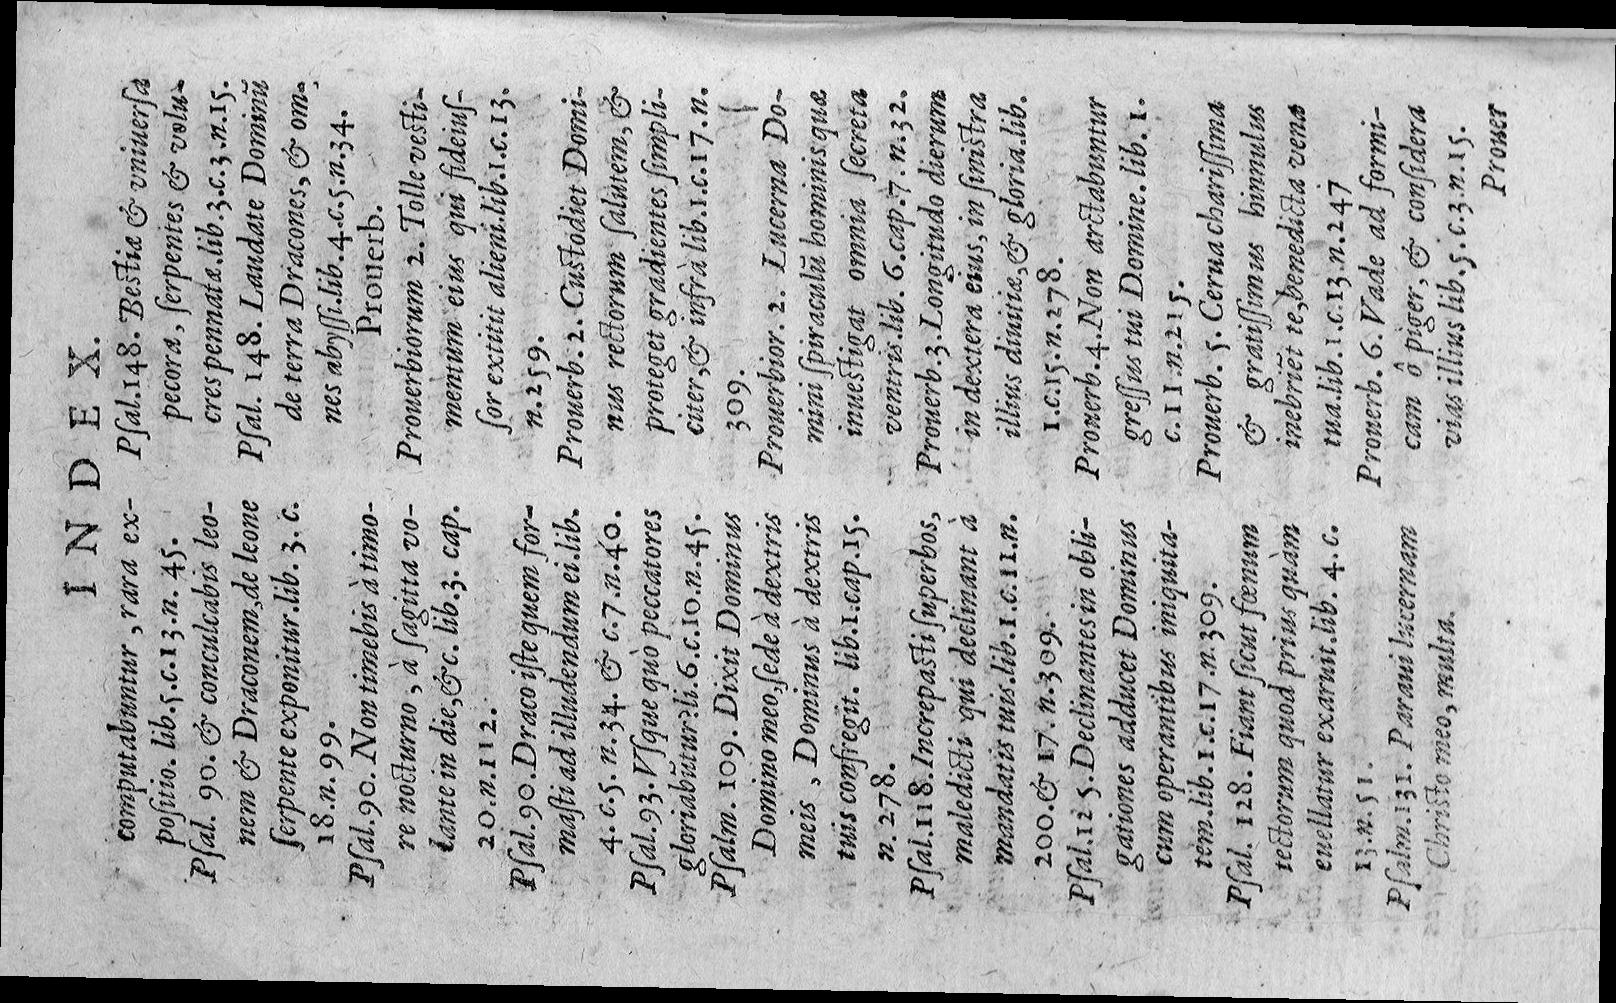 INDEX.
computabuntur, rara ex-
positio. lib.5.c.13.n. 45.
Pſal. 90. & conculcabis leo-
nem & Draconem, de leone
ſerpente exponitur. lib. 3. c.
18. n. 99.
Pſal.90. Non timebis à timo-
re nocturno, à ſagitta vo-
lante in die, &c. lib.3. cap.
20. n. 112.
Pſal.90. Draco iſte quem for-
maſti ad illudendum ei. lib.
4. c. 5. n. 34. & c. 7. n. 40.
Pſal.93. Vſque quò peccatores
gloriabũtur? li.6.c.10.n.45.
Pſalm. 109. Dixit Dominus
Domino meo, ſede à dextris
meis, Dominus à dextris
tuis confregit. lib.1.cap.15.
n. 278.
Pſal.118. Increpaſti ſuperbos,
maledicti qui declinant à
mandatis tuis. lib.1.c.11.n.
200. & 17. n. 309.
Pſal.125. Declinantes in obli-
gationes adducet Dominus
cum operantibus iniquita-
tem. lib.1.c.17.n.309.
Pſal. 128. Fiant ſicut fœnum
tectorum quod prius quàm
euellatur exaruit. lib. 4. c.
13. n. 51.
Pſalm.131. Paraui lucernam
Chriſto meo, multa.
Pſal.148. Beſtiæ & vniuerſa
pecora, ſerpentes & volu-
cres pennatæ. lib.3.c.3.n.15.
Pſal. 148. Laudate Dominũ
de terra Dracones, & om-
nes abyſſi. lib. 4.c.5.n.34.
Prouerb.
Prouerbiorum 2. Tolle veſti-
mentum eius qui fideiuſ-
ſor extitit alieni. lib.1.c.13.
n. 259.
Prouerb. 2. Cuſtodiet Domi-
nus rectorum ſalutem, &
proteget gradientes ſimpli-
citer, & infrà lib.1.c.17. n.
309.
Prouerbior. 2. Lucerna Do-
mini ſpiraculũ hominis quæ
inueſtigat omnia ſecreta
ventris. lib. 6. cap. 7. n. 32.
Prouerb. 3. Longitudo dierum
in dextera eius, in ſiniſtra
illius diuitiæ, & gloria. lib.
1. c. 15. n. 278.
Prouerb. 4. Non arctabuntur
greſſus tui Domine. lib. 1.
c. 11. n. 215.
Prouerb. 5. Cerua chariſſima
& gratiſſimus hinnulus
inebriẽt te, benedicta vena
tua. lib. 1. c. 13 n. 247
Prouerb. 6. Vade ad formi-
cam ô piger, & conſidera
vias illius lib. 5. c. 3. n. 15.
Prouer